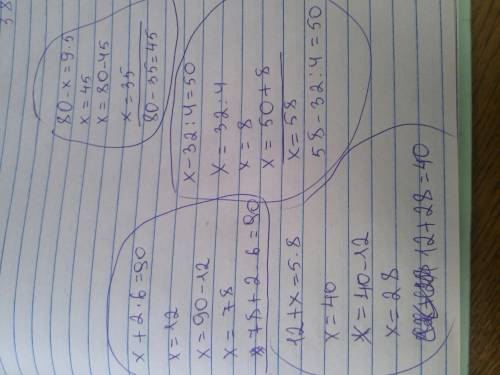 x + 2 · 6 = 90
x = 12
x = 90 - 12
x = 78
78 + 2 · 6 = 90
12 + x = 5 · 8
x = 40
x = 40 - 12
x = 28
12 + 28 = 40
80 - x = 9 · 5
x = 45
x = 80 - 45
x = 35
80 - 35 = 45
x - 32 : 4 = 50
x = 32 : 4
x = 8
x = 50 + 8
x = 58
58 - 32 : 4 = 50